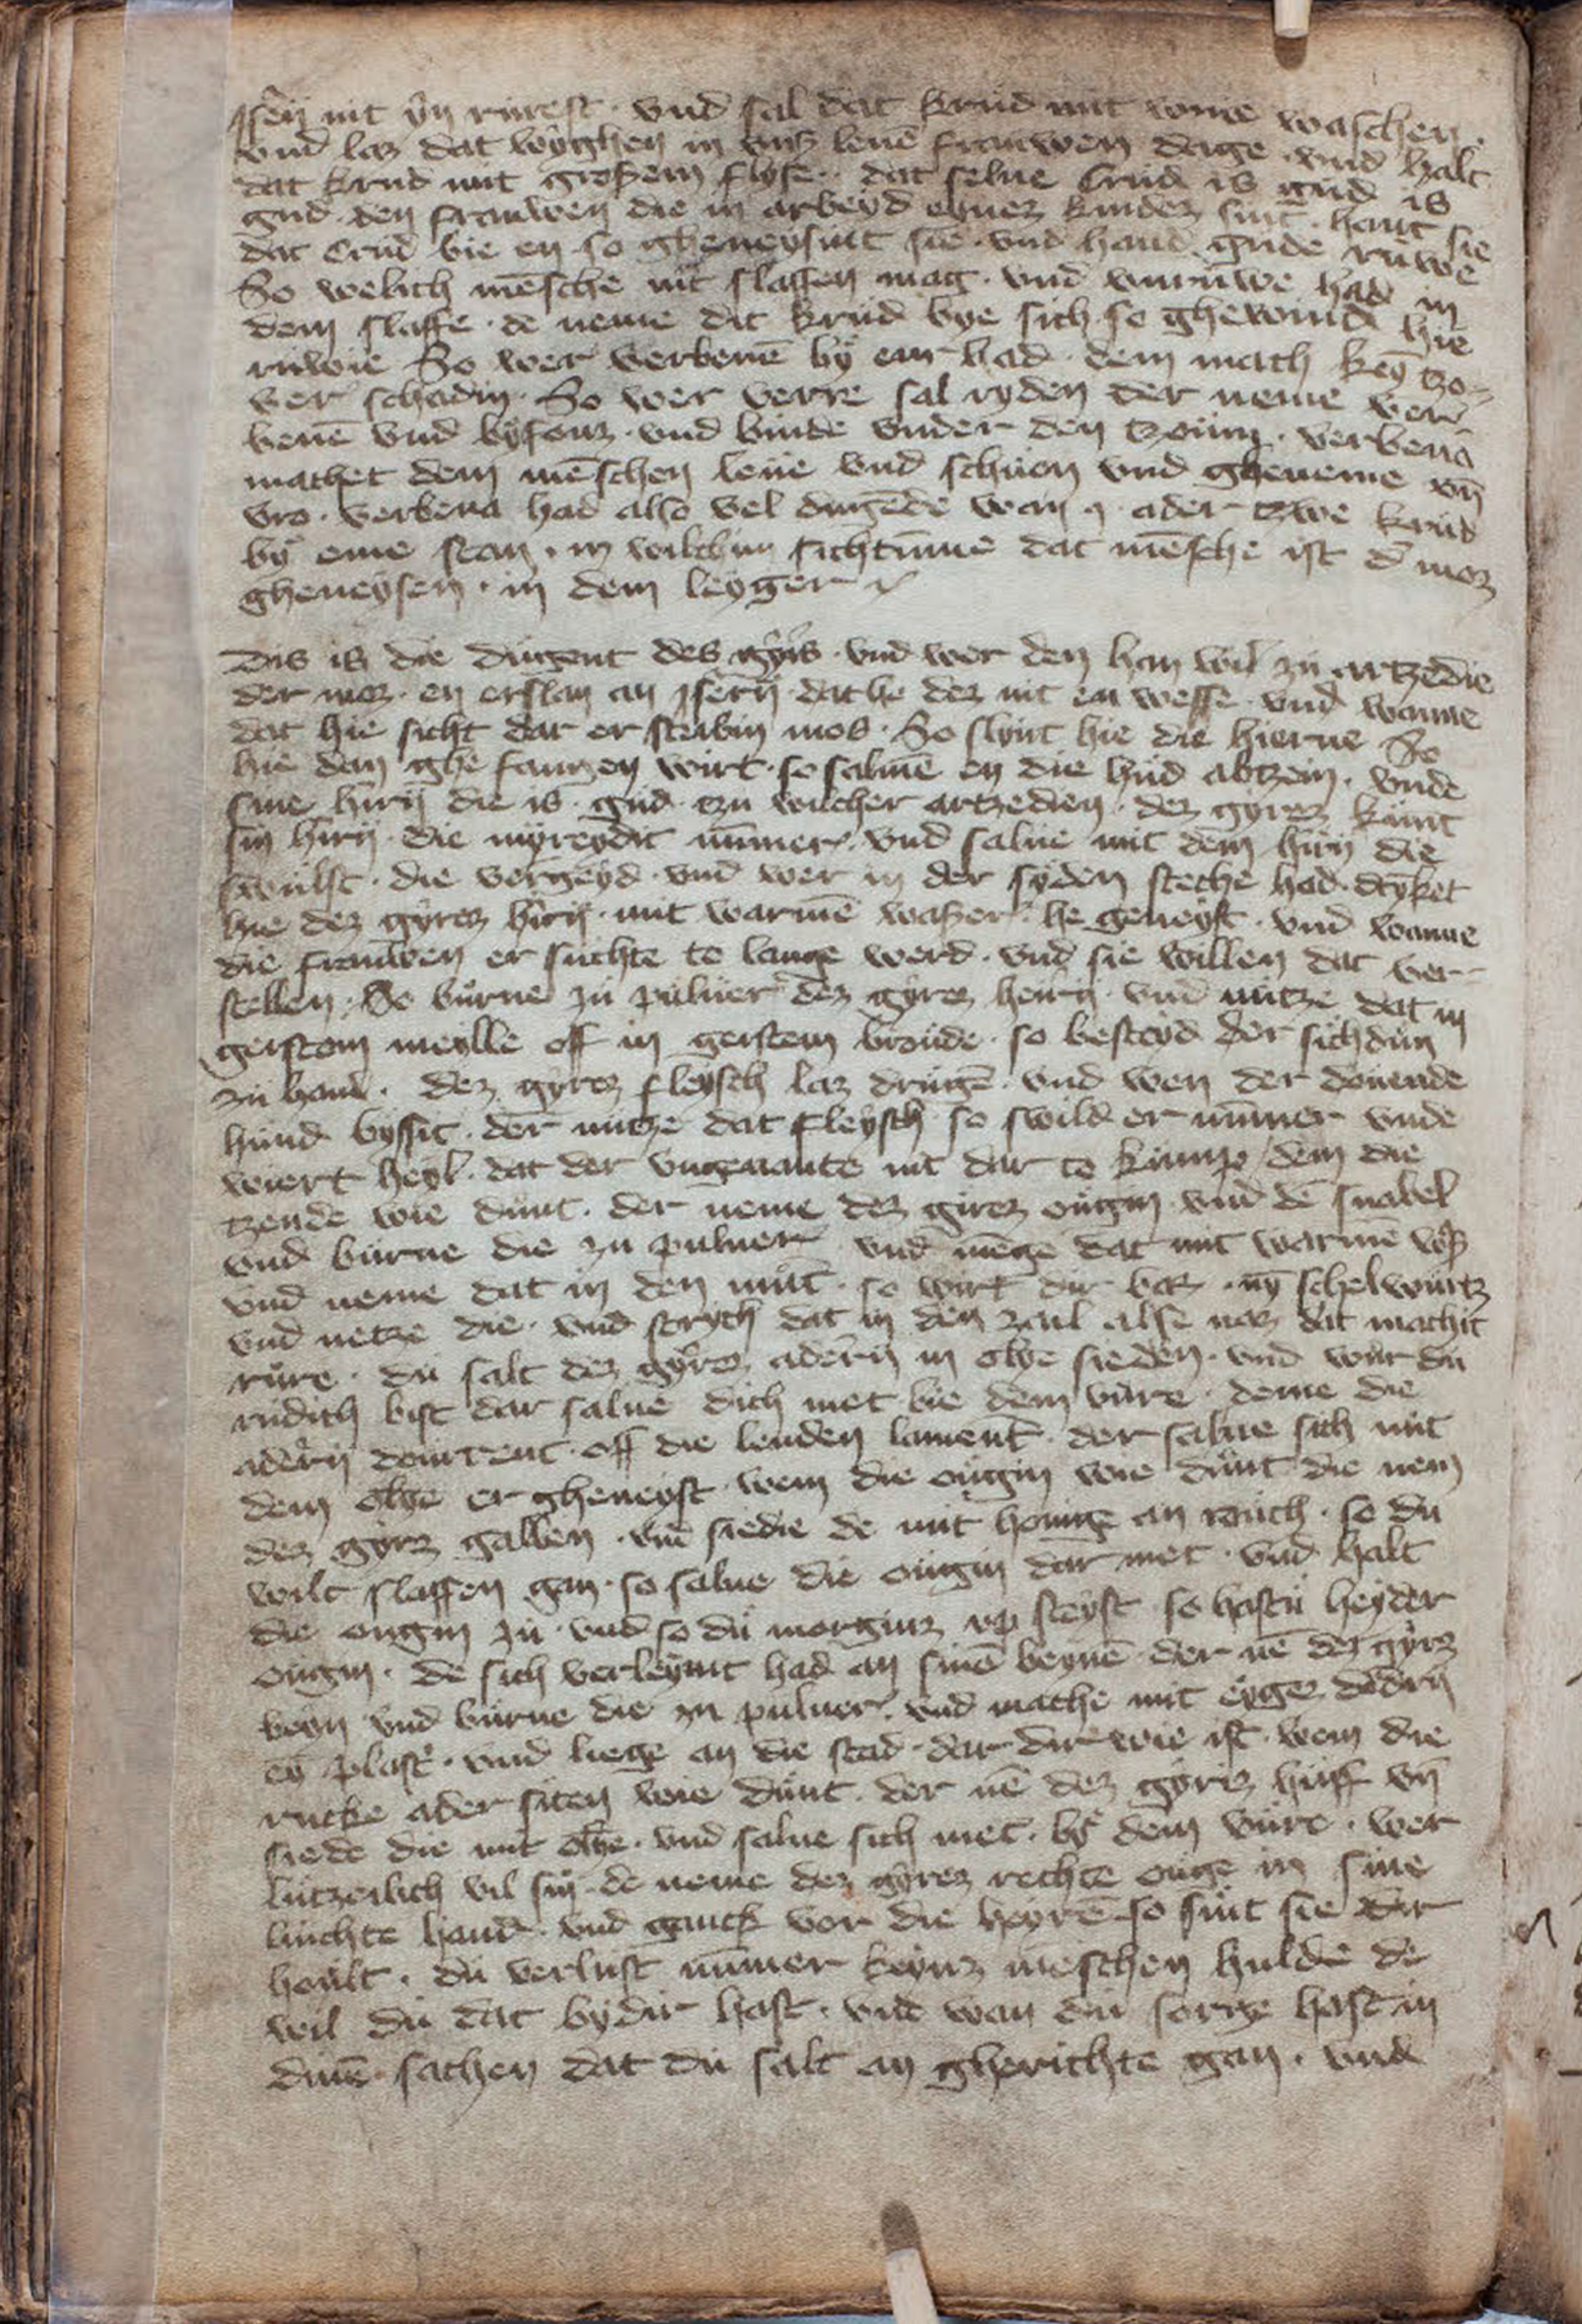 Jsen nit yn rurest · vnd sal dat krud mit wine waschen ·
vnd laz dat wyghen in vnß leuē frauwen dage · vnd halt
dat krud mit großem flyse · dat selue Crud is gud is
gud · den frauwen die in arbeyd eynez kindez sint · hant sie
dat Crud bie en so gheneysint sie · vnd hand gude ruwe
So welich mēsche nit slaffen mag · vnd vnruwe had in
dem slaffe · de neme dit krud bye sich so ghewind hie
ruwie So wer verbenē by eme had · dem mach key tzo-
ver schadin · So wer verre sal ryden der neme ver-
benē vnd byfouz · vnd binde vnder den tzoum · verbena
machet dem mēschen leue vnd schuen vnd gheneme vn̄
vro · verbena had also vel dugēde wan j ader twe krud
by eme stan · in wilchim sichtumme dat mēsche ist d' moz
gheneysen · in dem leyger
Dis is die dugent des gyrs · vnd wer den han wil zu artzedie
der moz · en erslan an Jsern · dat he dez nit en wesse · vnd wanne
dat hie sicht dar er sterbin mos · So slynt hie die hierne So
hie dan ghe fangen wirt · so salmē en die hud abtzein · vnde
sine hirn die is gud · tzu vilcher artzedien · dez gyrez kumt
sin hirn · die myreydit nūmer · vnd salue mit dem hirn die
swulst · die vergeyd · vnd wer in der syden steche had · drīket
hie dez gyrez hirn · mit warmē waßer · he geneyst · vnd wanne
die frauwen er suchte to lange werd · vnd sie willen dat ver-
stellen · So burne zu puluer dez gyrez heirn vnd nutze dat in
gerstem meylle off in gerstem broude · so besteyd der sichdum
zu hand · Dez gyrez fleysch laz drugē · vnd wen der douende
hund byssit · der nutze dat fleysch so swild er nūmer vnde
wiert heyl · dat der vngenante nit dar to kumpt dem die
tzende wie dunt · der neme dez girez ougin vnd dē snabel
vnd burne die zu puluer vnd mēge dat mit warmē
vnd neme dat in den mūt · so wirt dir baz · nȳ schelwurtz
vnd netze die · vnd strych dat in den zail alse naz dat machit
rure · du salt dez gyrez adern in olye sieden · vnd wur du
rudich bist dar salue dich met bie dem vure · deme die
adern dourrent · off die lenden lament · der salue sich mit
dem olye er gheneyst · wem die ougin wie dunt die nem
dez gyrz gallen · vnd siedie de mit honige an rouch · so du
wilt slaffen gan · so salue die ougin dar met · vnd halt
die ougin zu · vnd so du morginz vp steyst so hastu heyder
ougin · de sich verleymt had an sinē beynē der nē dez gyrz
beyn vnd burne die zu puluer · vnd mache mit eyger dodern
ey plast' · vnd liege an die stad · dar dir wie ist · wem die
rucke ader siten wie dunt · der nē dez gyrez huff vn̄
siede die mit olye · vnd salue sich met · by dem vure · wer
lutzerlich vil sin · de neme dez gyrez rechte ouge in sine
luchte hand · vnd ganck vor die heyrē so sint sie dir
hoult · du verlust nūmer keynz mēschen hulde de
wil du dat by dir hast · vnd wan du sorge hast in
dinē sachen dat du salt an gherichte gan · vnd